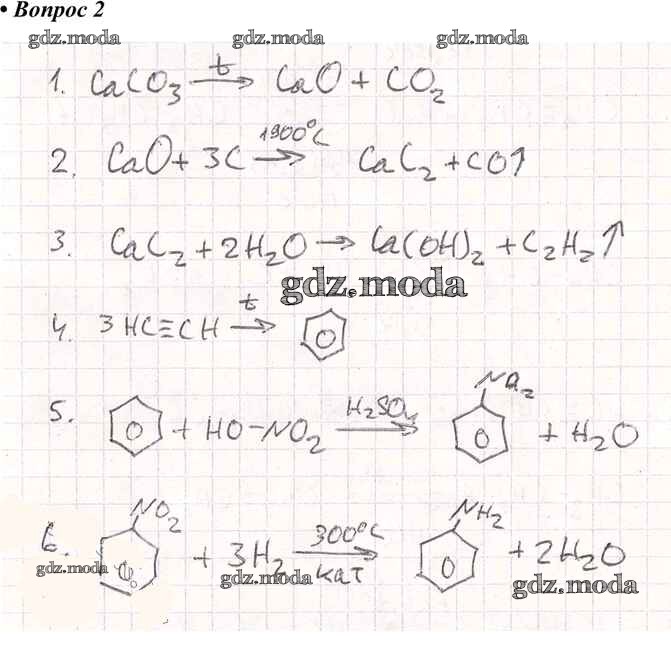 • Вопрос 2
gdz.moda gdz.moda gdz.moda
1. CaCO₃ t→ CaO + CO₂
2. CaO + 3C 1900°C→ CaC₂ + CO↑
3. CaC₂ + 2H₂O → Ca(OH)₂ + C₂H₂↑
gdz.moda
4. 3HC≡CH t→
5. + HO-NO₂ H₂SO₄→ NO₂ + H₂O
6. NO₂ + 3H₂ 300°C кат→ NH₂ + 2H₂O
gdz.moda gdz.moda gdz.moda